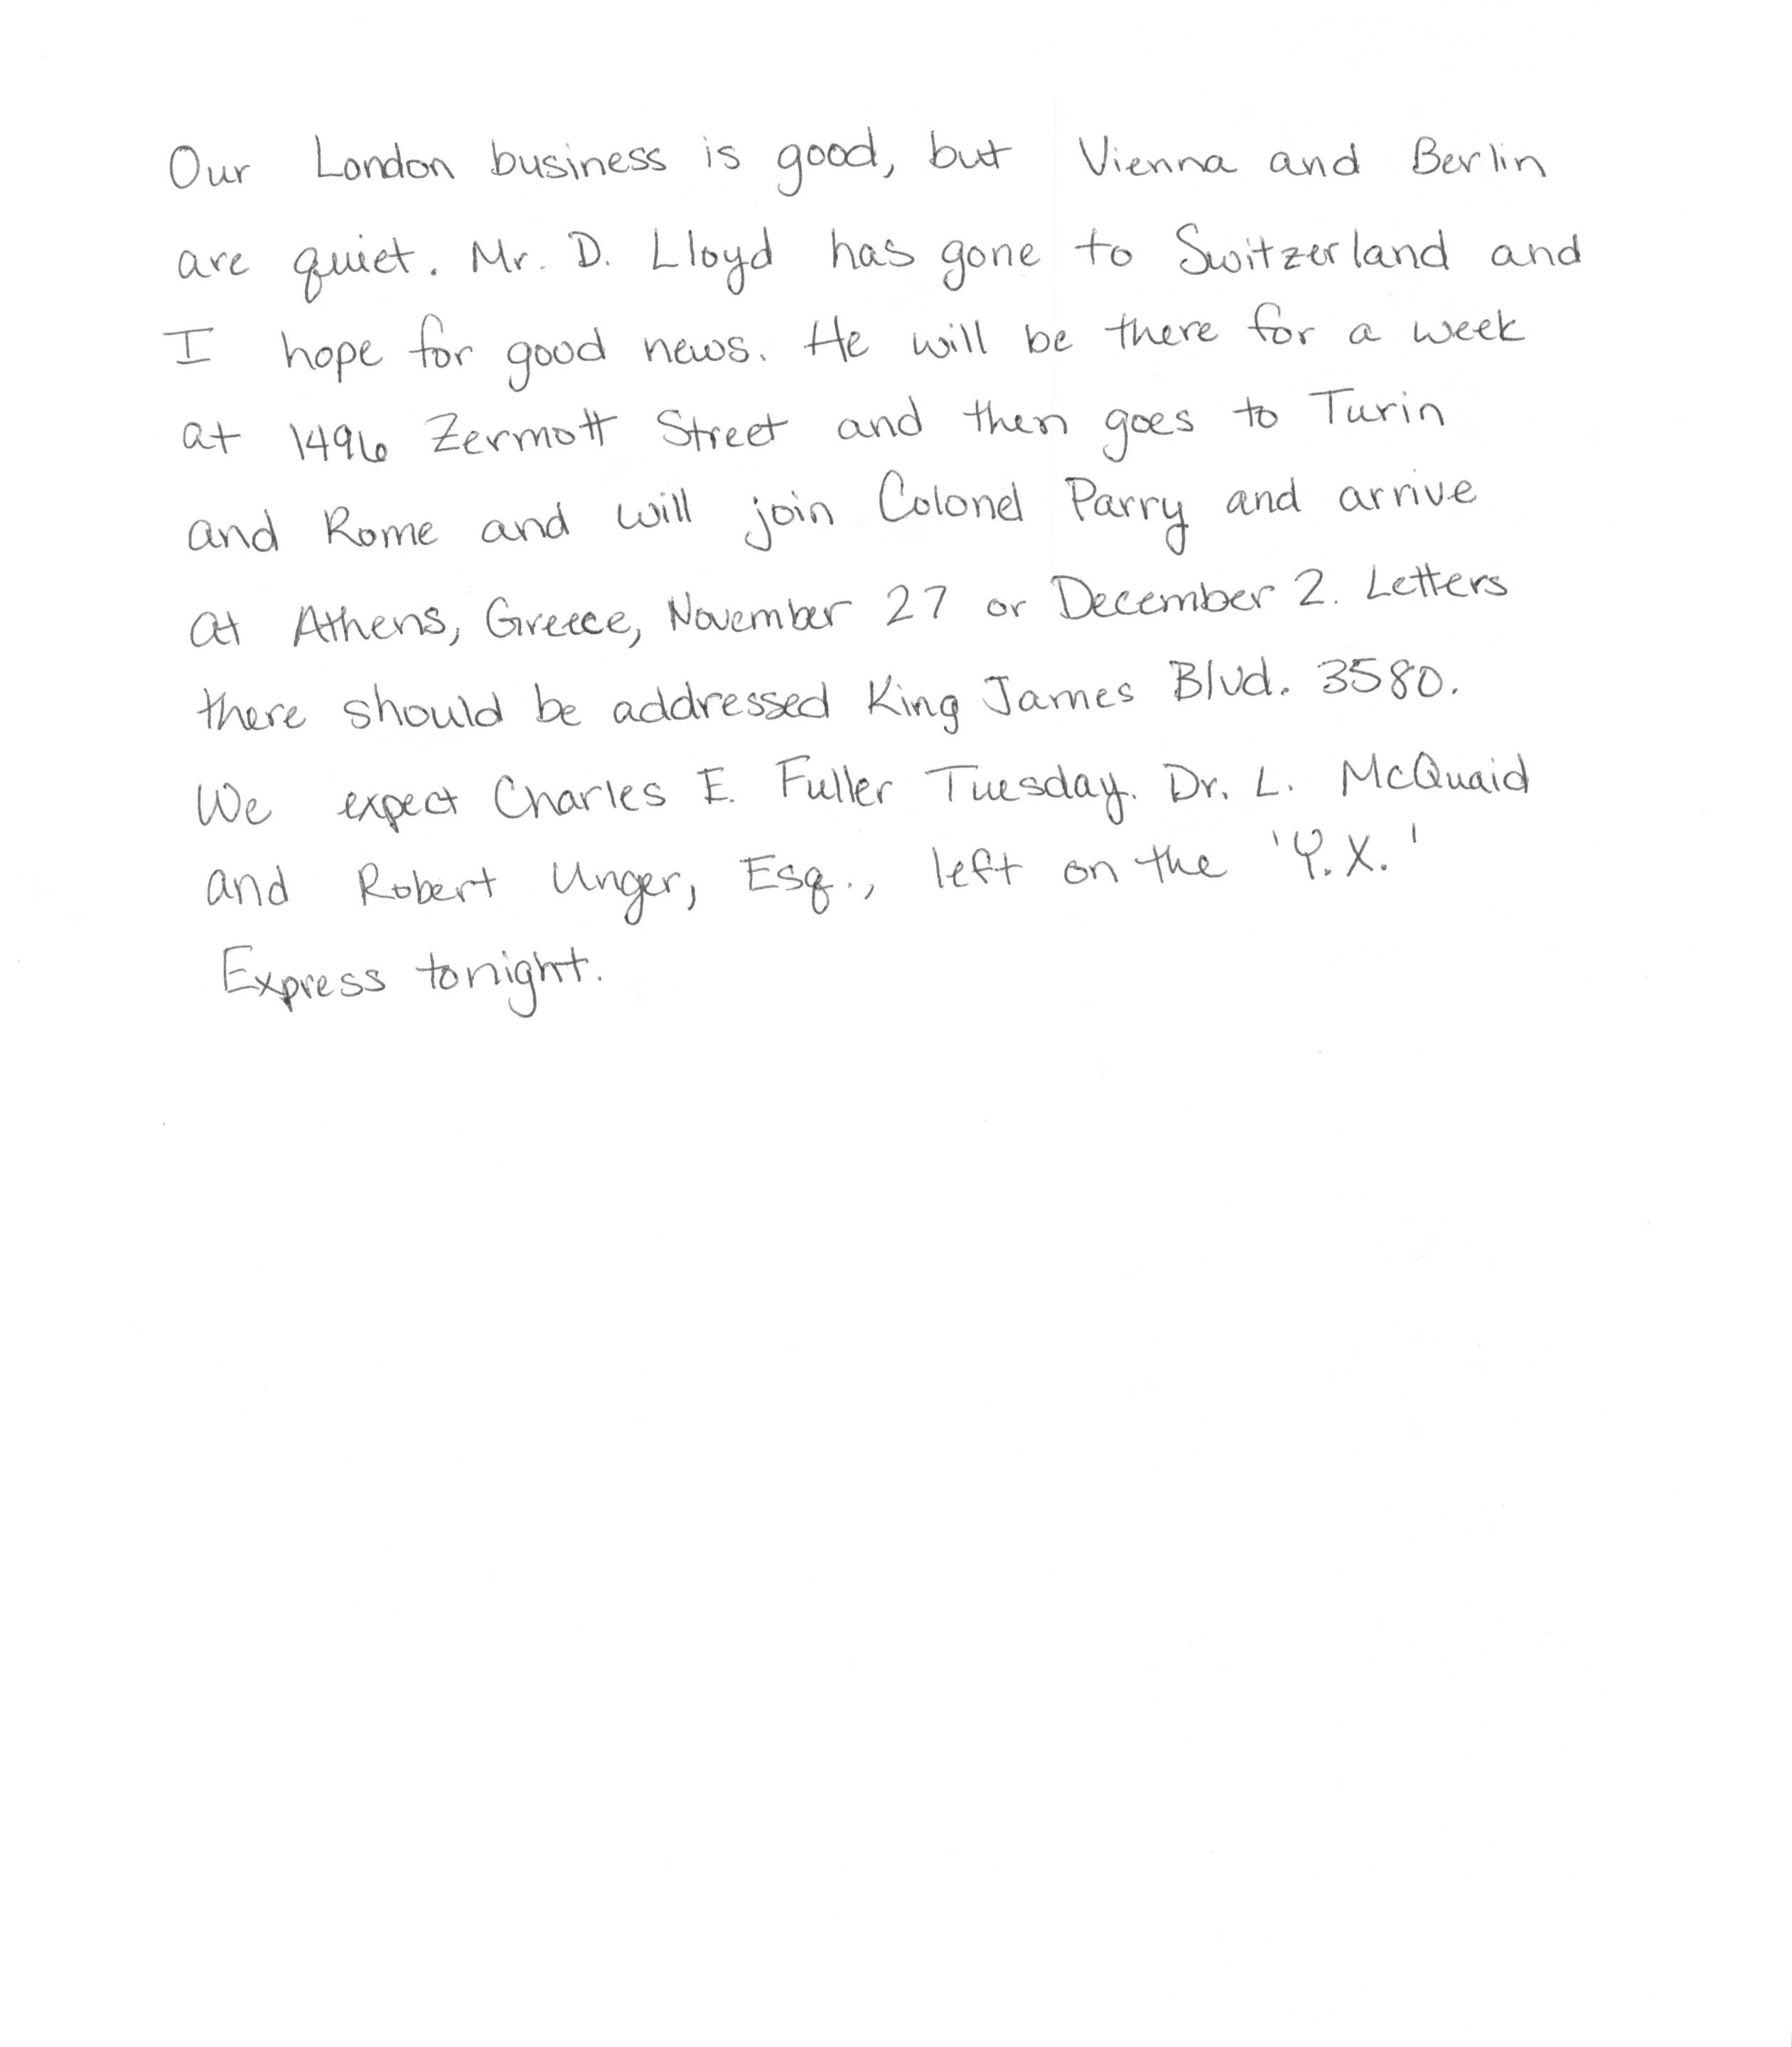 Our London business is good, but Vienna and Berlin
are quiet. Mr. D. Lloyd has gone to Switzerland and
I hope for good news. He will be there for a week
at 1496 Zermott Street and then goes to Turin
and Rome and will join Colonel Parry and arrive
at Athens, Greece, November 27 or December 2. Letters
there should be addressed King James Blvd. 3580.
We expect Charles E. Fuller Tuesday. Dr. L. McQuaid
and Robert Unger, Esq., left on the 'Y.X.'
Express tonight.